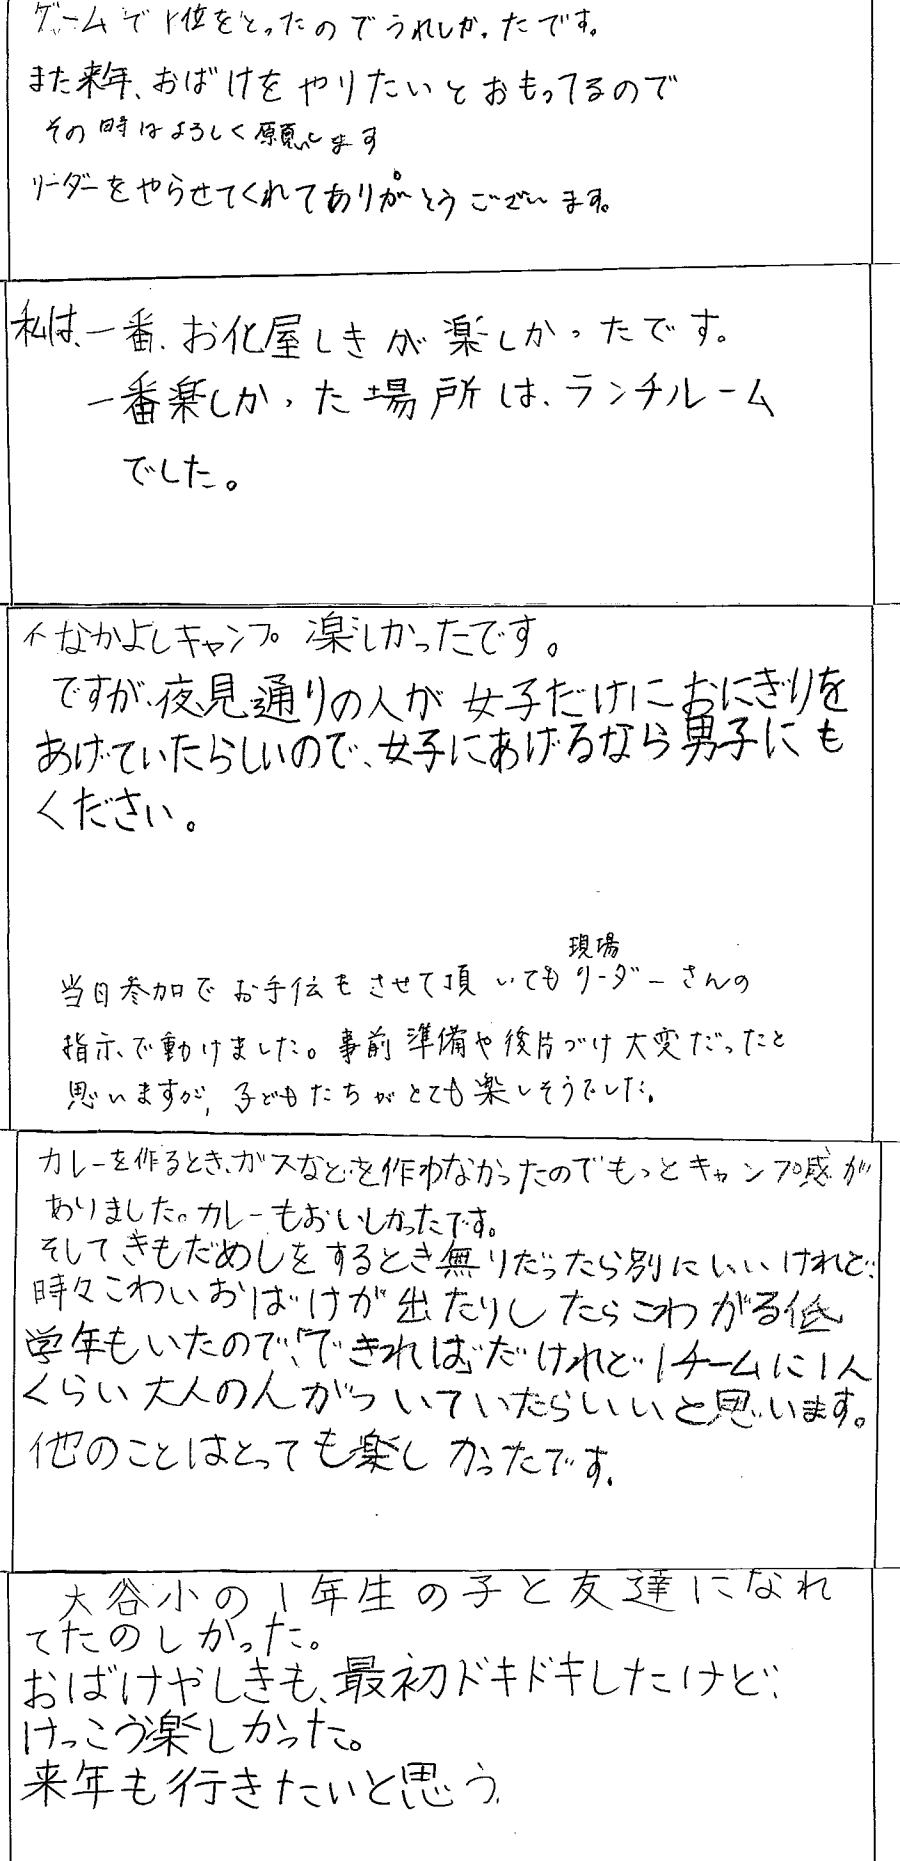 ゲームで1位をとったのでうれしかったです。
また来年、おばけをやりたいとおもってるので
その時はよろしく願いします
リーダーをやらせてくれてありがとうございます。
私は、一番、お化屋しきが楽しかったです。
一番楽しかった場所は、ランチルーム
でした。
なかよしキャンプ 楽しかったです。
ですが、夜見通りの人が女子だけにおにぎりを
あげていたらしいので、女子にあげるなら男子にも
ください。
現場
当日参加でお手伝もさせて頂いてもリーダーさんの
指示で動けました。事前準備や後片づけ大変だったと
思いますが、子どもたちがとても楽しそうでした。
カレーを作るとき、ガスなどを作わなかったのでもっとキャンプ感が
ありました。カレーもおいしかったです。
そしてきもだめしをするとき無りだったら別にいいけれど、
時々こわいおばけが出たりしたらこわがる低
学年もいたので、できればだけれど1チームに1人
くらい大人の人がついていたらいいと思います。
他のことはとっても楽しかったです。
大谷小の1年生の子と友達になれ
てたのしかった。
おばけやしきも、最初ドキドキしたけど、
けっこう楽しかった。
来年も行きたいと思う。